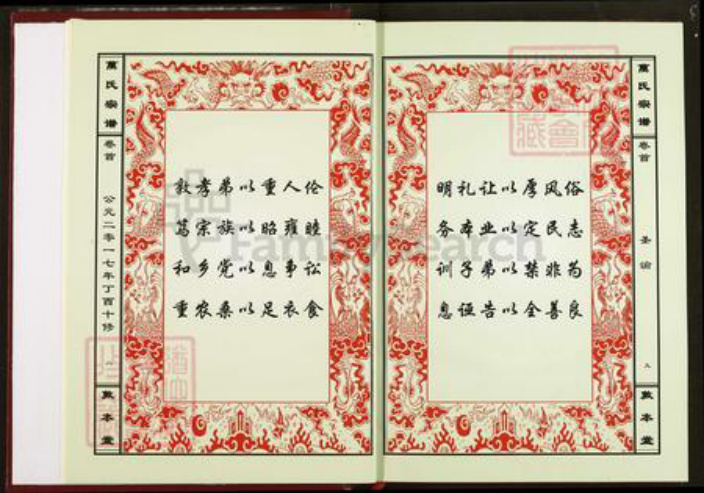 萬氏宗谱
卷首
圣谕
九
敦本堂
明礼让以厚风俗
务本业以定民志
训子弟以禁非为
息诬告以全善良
敦孝弟以重人伦
笃宗族以昭雍睦
和乡党以息争讼
重农桑以足衣食
萬氏宗谱
卷首
公元二零一七年丁酉十修
敦本堂
FamilySearch